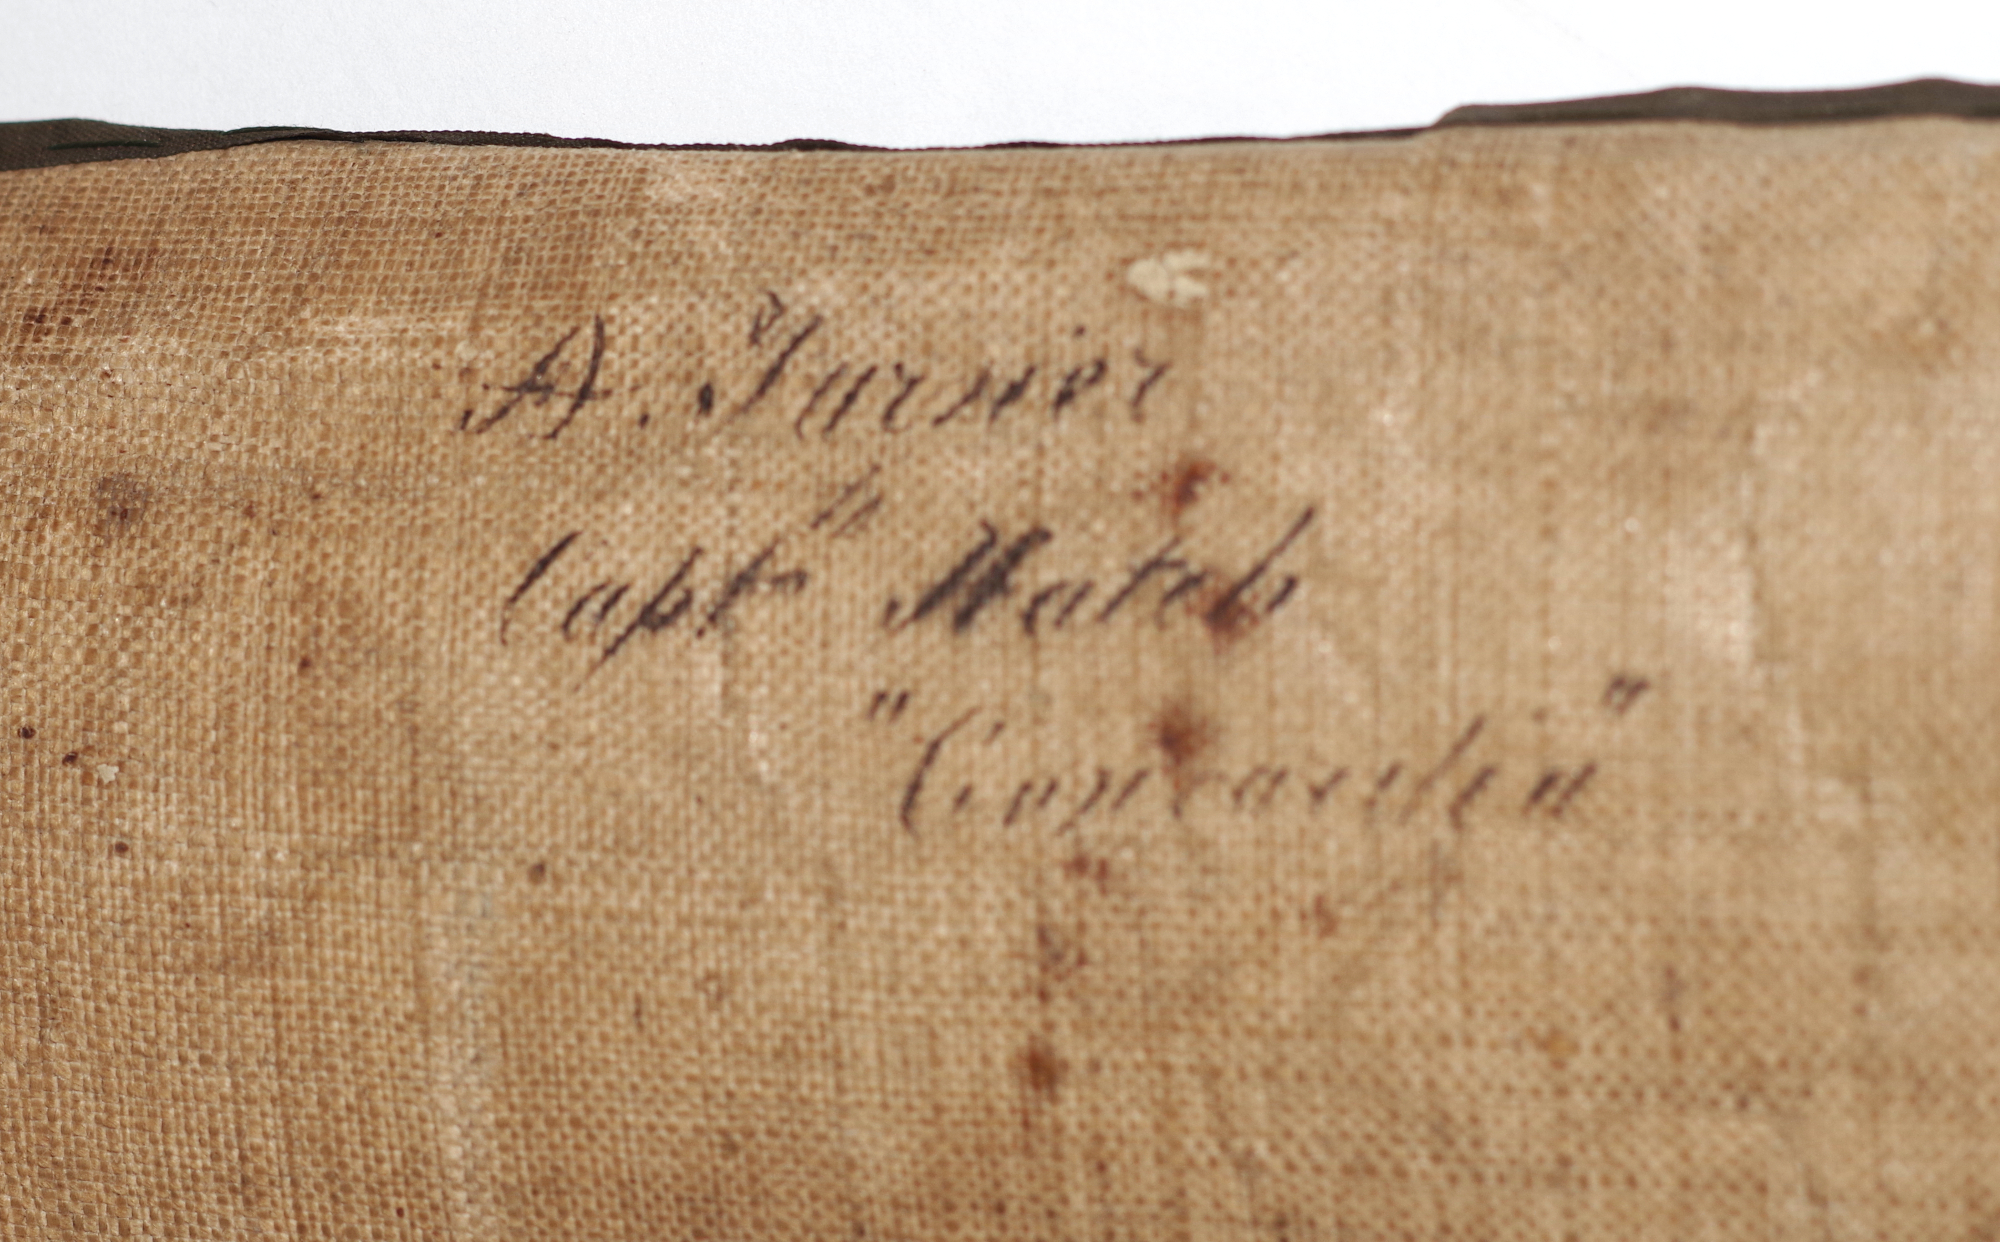 A. Turner
Capt
"Concordia"